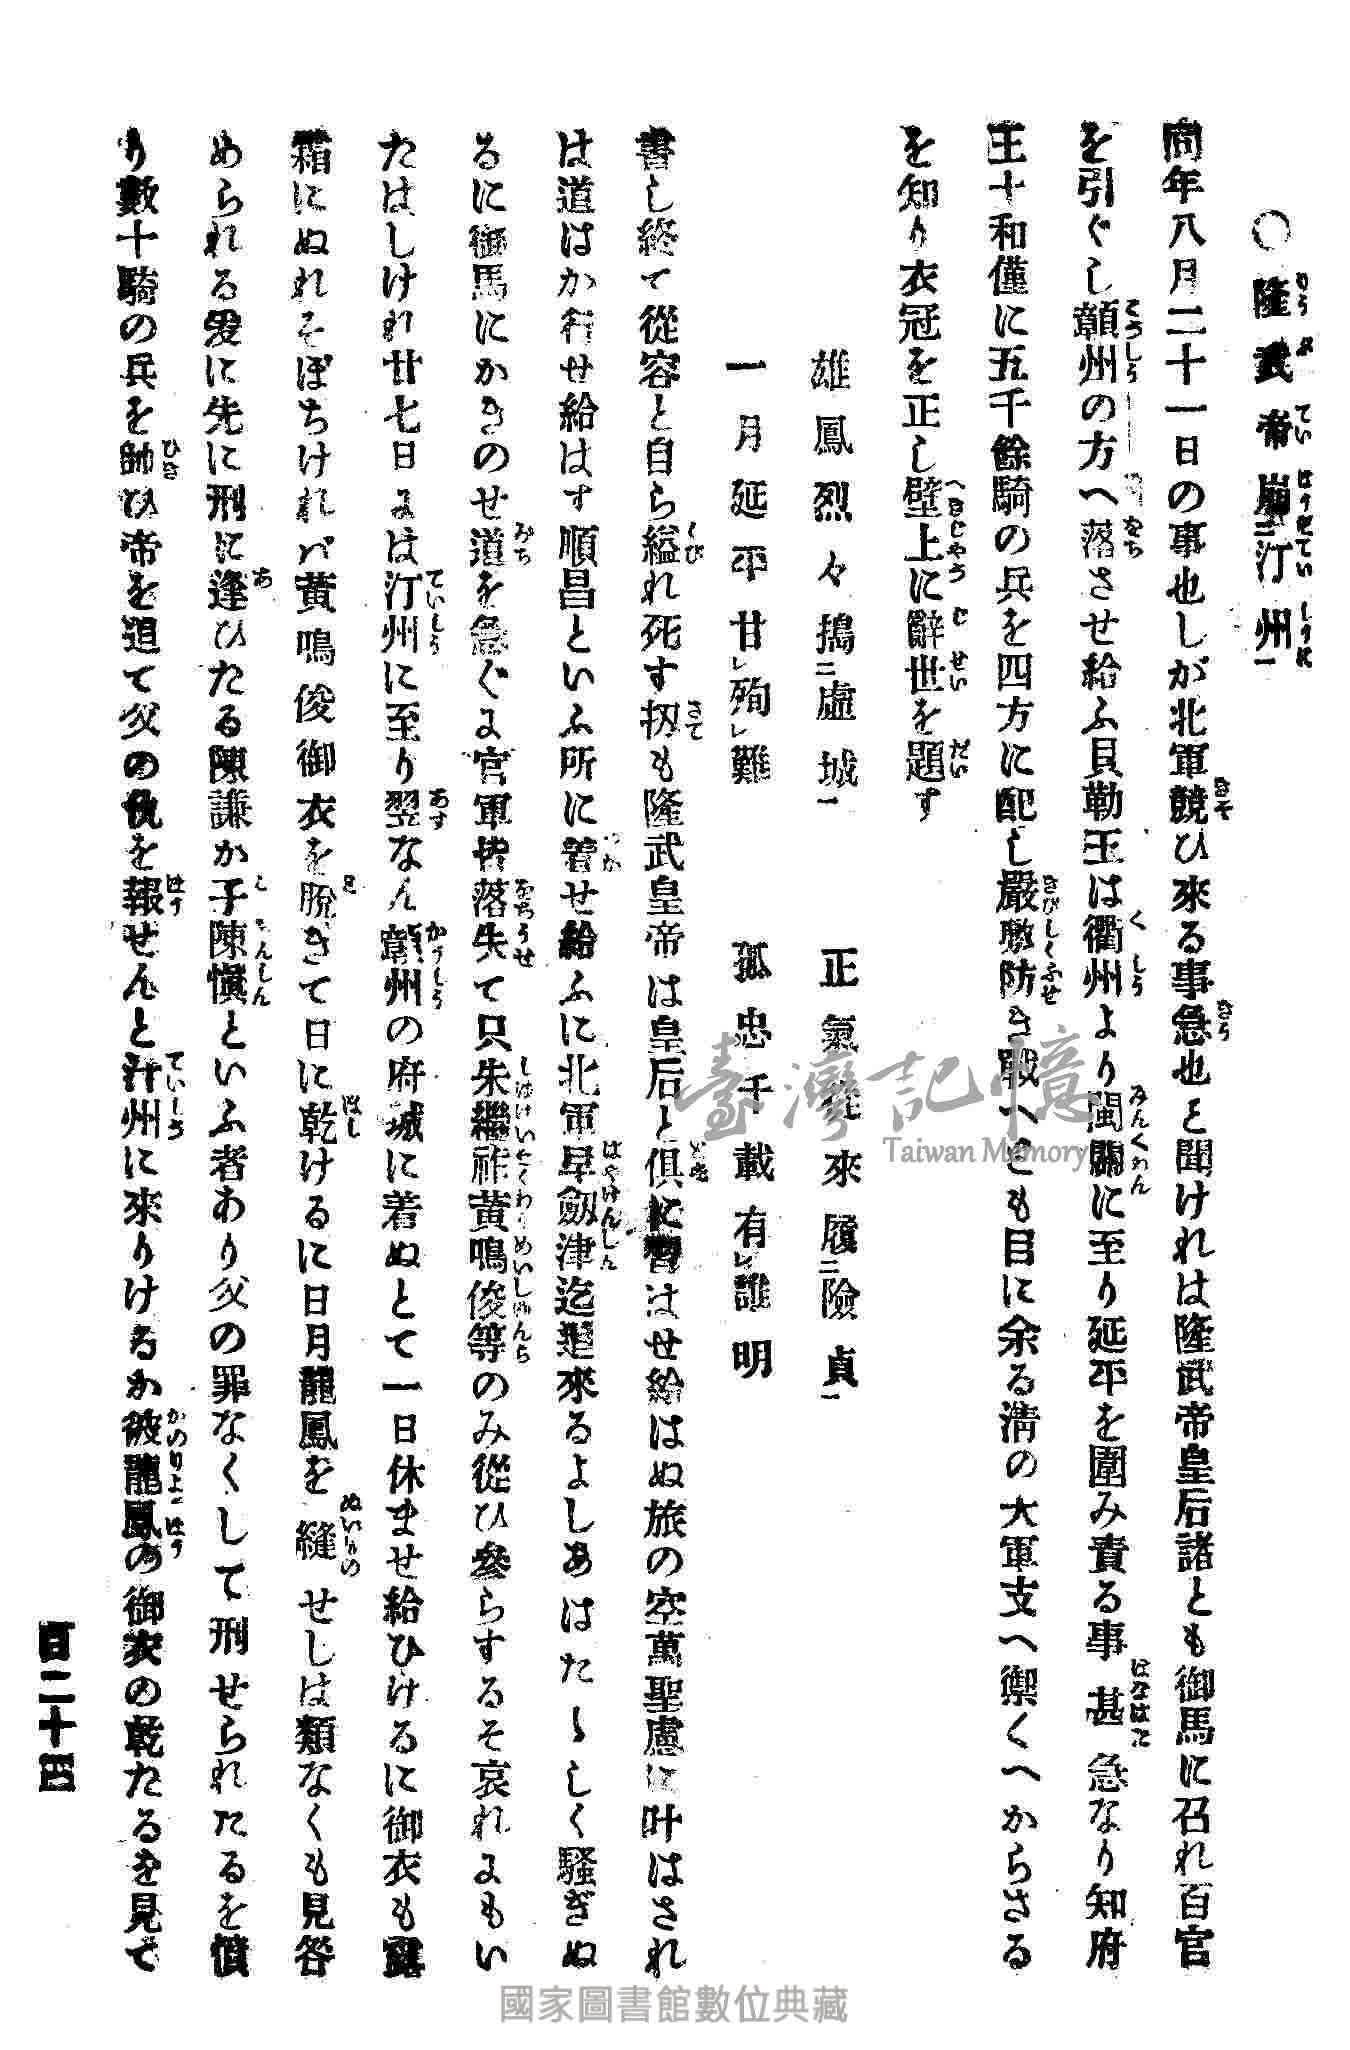 ○隆武帝崩二汀州一
同年八月二十一日の事也しが北軍競ひ來る事急也と聞けれは隆武帝皇后諸とも御馬に召れ百官
を引ぐし贑州の方へ落させ給ふ貝勒王は衢州より閩關に至り延平を圍み責る事甚急なり知府
王士和僅に五千餘騎の兵を四方に配し嚴敷防き戰へとも目に余る淸の大軍支へ禦くへからさる
を知り衣冠を正し壁上に辭世を題す
雄鳳烈々搗二虛城一 正氣從來履二險貞一
一月延平甘レ殉レ難 孤忠千載有レ誰明
書し終て從容と自ら縊れ死す扨も隆武皇帝は皇后と俱に はせ給はぬ旅の空萬聖慮に叶はされ
は道はか行せ給はす順昌といふ所に着せ給ふに北軍早劔津迄 來るよしあはたゝしく騷ぎぬ
るに御馬にかきのせ道を急ぐに官軍皆落失て只朱繼祚黃鳴俊等のみ從ひ參らするそ哀れにもい
たはしけれ廿七日には汀州に至り翌なん贑州の府城に着ぬとて一日休ませ給ひけるに御衣も露
霜にぬれそぼちけれバ黃鳴俊御衣を脫きて日に乾けるに日月龍鳳を縫せしは類なくも見咎
められる爰に先に刑に逢ひたる陳謙か子陳愼といふ者あり父の罪なくして刑せられたるを憤
り數十騎の兵を帥ひ帝を追て父の仇を報せんと汀州に來りけるか彼龍鳳の御衣の乾たるを見て
百二十四
臺灣記憶
Taiwan Memory
國家圖書館數位典藏